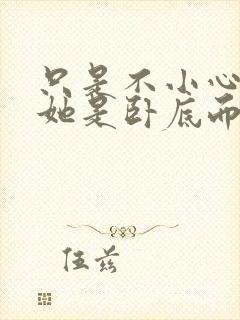 只是不小心
她是卧底而
伍兹